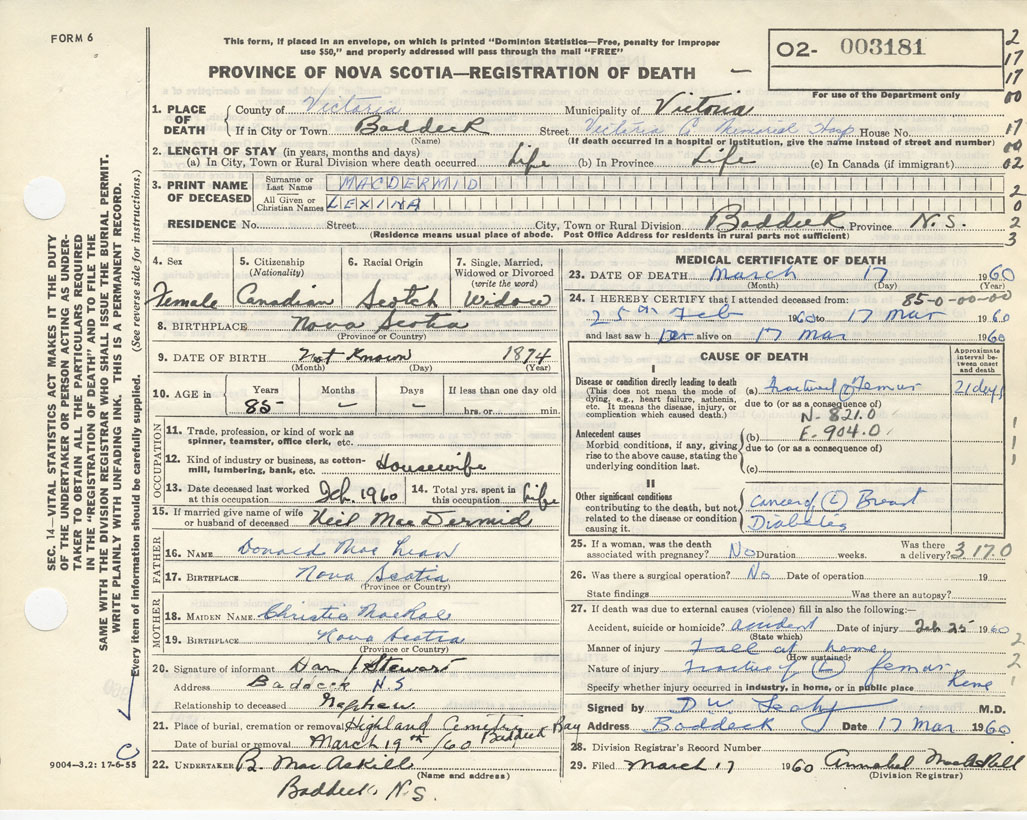 FORM 6
This form, if placed in an envelope, on which is printed "Dominion Statistics—Free, penalty for improper
use $50," and properly addressed will pass through the mail "FREE"
PROVINCE OF NOVA SCOTIA—REGISTRATION OF DEATH
02- 003181
For use of the Department only
2
17
17
00
17
00
02
2
0
2
3
1. PLACE OF DEATH
County of Victoria Municipality of Victoria
If in City or Town Baddeck Street Victoria Co Memorial Hosp House No.
(Name) (If death occurred in a hospital or institution, give the name instead of street and number)
2. LENGTH OF STAY (in years, months and days)
(a) In City, Town or Rural Division where death occurred Life (b) in Province Life (c) in Canada (if immigrant)
3. PRINT NAME OF DECEASED
Surname or Last Name MACDERMID
All Given or Christian Names LEXINA
RESIDENCE No. Street City, Town or Rural Division Baddeck Province N.S.
(Residence means usual place of abode. Post Office Address for residents in rural parts not sufficient)
4. Sex 5. Citizenship (Nationality) 6. Racial Origin 7. Single, Married, Widowed or Divorced (write the word)
Female Canadian Scotch Widow
8. BIRTHPLACE Nova Scotia
(Province or Country)
9. DATE OF BIRTH Not Known 1874
(Month) (Day) (Year)
10. AGE in Years Months Days If less than one day old
85 - - hrs. or min.
OCCUPATION
11. Trade, profession, or kind of work as
spinner, teamster, office clerk, etc.
12. Kind of industry or business, as cotton-
mill, lumbering, bank, etc. Housewife
13. Date deceased last worked at this occupation Feb. 1960 14. Total yrs. spent in this occupation Life
15. If married give name of wife
or husband of deceased Neil MacDermid
FATHER
16. NAME Donald MacLean
17. BIRTHPLACE Nova Scotia
(Province or Country)
MOTHER
18. MAIDEN NAME Christie MacRae
19. BIRTHPLACE Nova Scotia
(Province or Country)
20. Signature of informant Dan J Stewart
Address Baddeck N.S.
Relationship to deceased Nephew
21. Place of burial, cremation or removal Highland Cemetery Baddeck Bay
Date of burial or removal March 19th /60
22. UNDERTAKER B. MacAskill
(Name and address)
Baddeck, N.S.
MEDICAL CERTIFICATE OF DEATH
23. DATE OF DEATH March 17 1960
(Month) (Day) (Year)
24. I HEREBY CERTIFY that I attended deceased from: 85-0-00-00
25th Feb 1960 to 17 Mar 1960
and last saw her alive on 17 Mar 1960
CAUSE OF DEATH
Approximate interval between onset and death
I
Disease or condition directly leading to death
(This does not mean the mode of
dying, e.g., heart failure, asthenia,
etc. It means the disease, injury, or
complication which caused death.)
(a) Fracture of Femur 21 days
due to (or as a consequence of)
N-821.0
E-904.0
Antecedent causes
Morbid conditions, if any, giving
rise to the above cause, stating the
underlying condition last.
(b)
due to (or as a consequence of)
(c)
II
Other significant conditions
contributing to the death, but not
related to the disease or condition
causing it.
Cancer of (L) Breast
Diabetes
1
1
1
25. If a woman, was the death
associated with pregnancy? No Duration weeks. Was there a delivery? 317.0
26. Was there a surgical operation? No Date of operation 19
State findings Was there an autopsy?
27. If death was due to external causes (violence) fill in also the following:—
Accident, suicide or homicide? accident Date of injury Feb 25 1960
(State which)
Manner of injury Fall at home
(How sustained)
Nature of injury Fracture of (L) femur
Specify whether injury occurred in industry, in home, or in public place Home
2
2
1
Signed by M.D.
Address Baddeck Date 17 Mar 1960
28. Division Registrar's Record Number
29. Filed March 17 1960 Annabel MacAskill
(Division Registrar)
SEC. 14—VITAL STATISTICS ACT MAKES IT THE DUTY
OF THE UNDERTAKER OR PERSON ACTING AS UNDER-
TAKER TO OBTAIN ALL THE PARTICULARS REQUIRED
IN THE "REGISTRATION OF DEATH" AND TO FILE THE
SAME WITH THE DIVISION REGISTRAR WHO SHALL ISSUE THE BURIAL PERMIT.
WRITE PLAINLY WITH UNFADING INK. THIS IS A PERMANENT RECORD.
Every item of information should be carefully supplied. (See reverse side for instructions.)
C
9004—3.2: 17-6-55